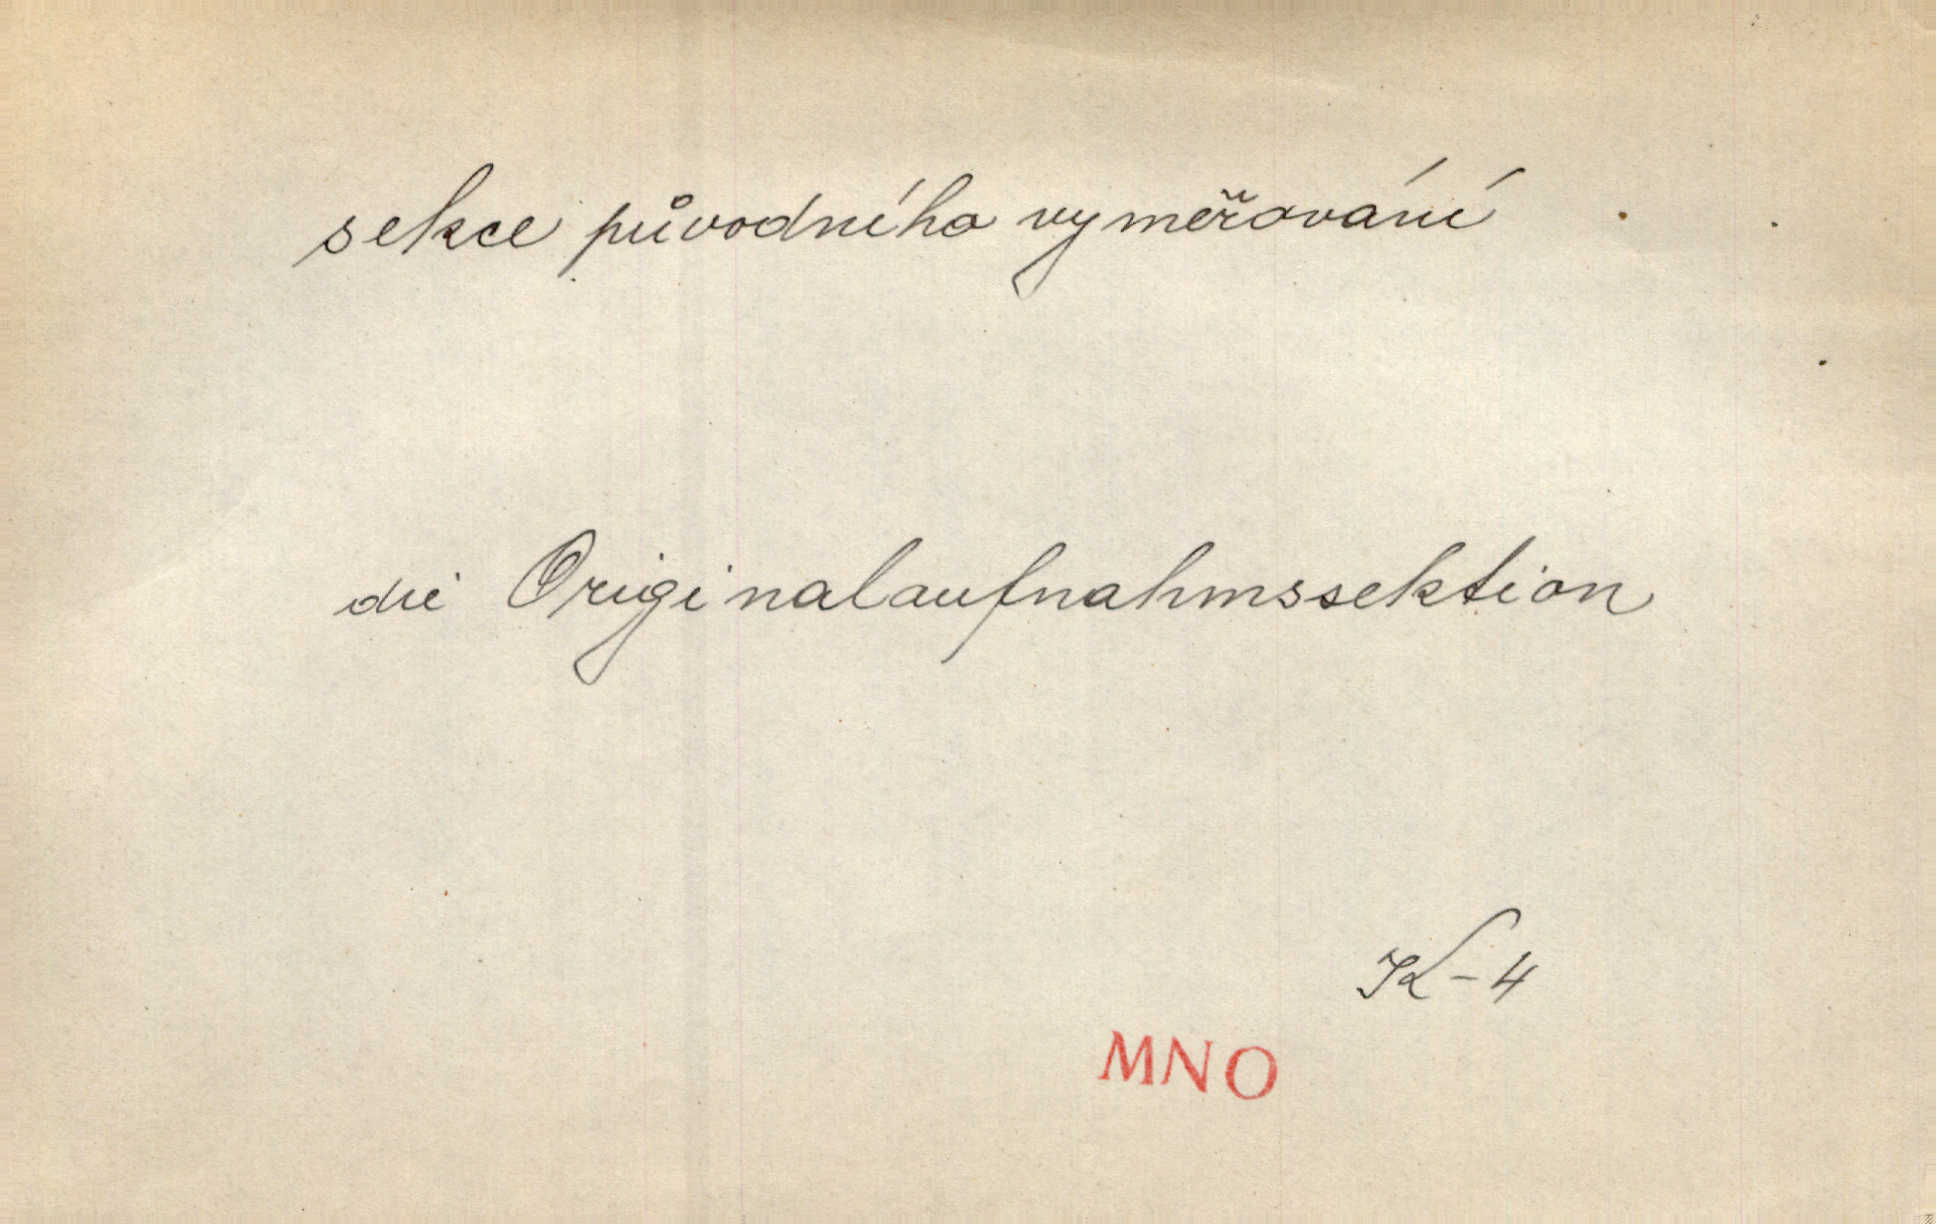 sekce původního vyměřování
die Originalaufnahmssektion
K-4
MNO